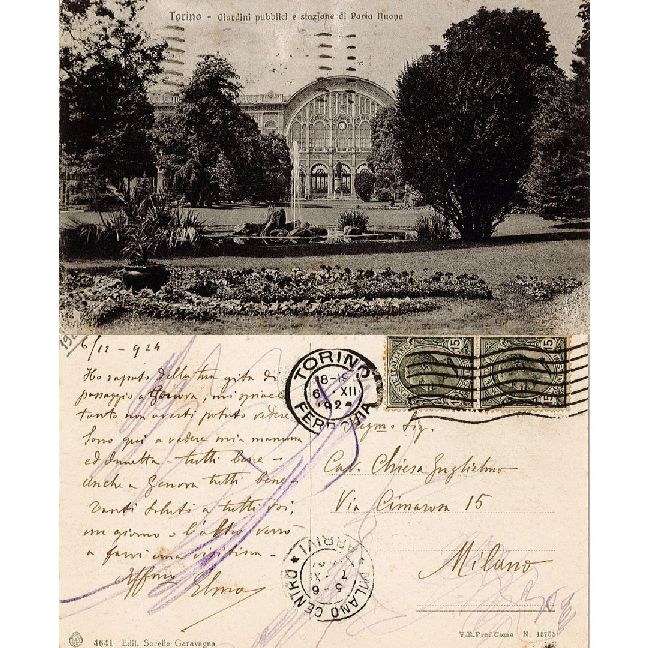 Torino - Giardini pubblici e stazione di Porta Nuova
6/12 - 924
Ho saputo della tua gita di
passaggio a Genova, mi spiace
tanto non averti potuto vedere.
Sono qui a vedere mia mamma
ed Annetta tutti bene -
anche a Genova tutti bene -
Tanti saluti a tutti voi,
un giorno o l'altro verrò
a farvi una visitina -
Elma
TORINO
6 XII
1924
FERROVIA
15
15
Sig.
Cav. Chiesa Guglielmo
Via Cimarosa 15
Milano
MILANO CENTRO
ARRIVI
5-6
4641 Edit. Sorelle Garavagna
V.B. Pref. Como N.